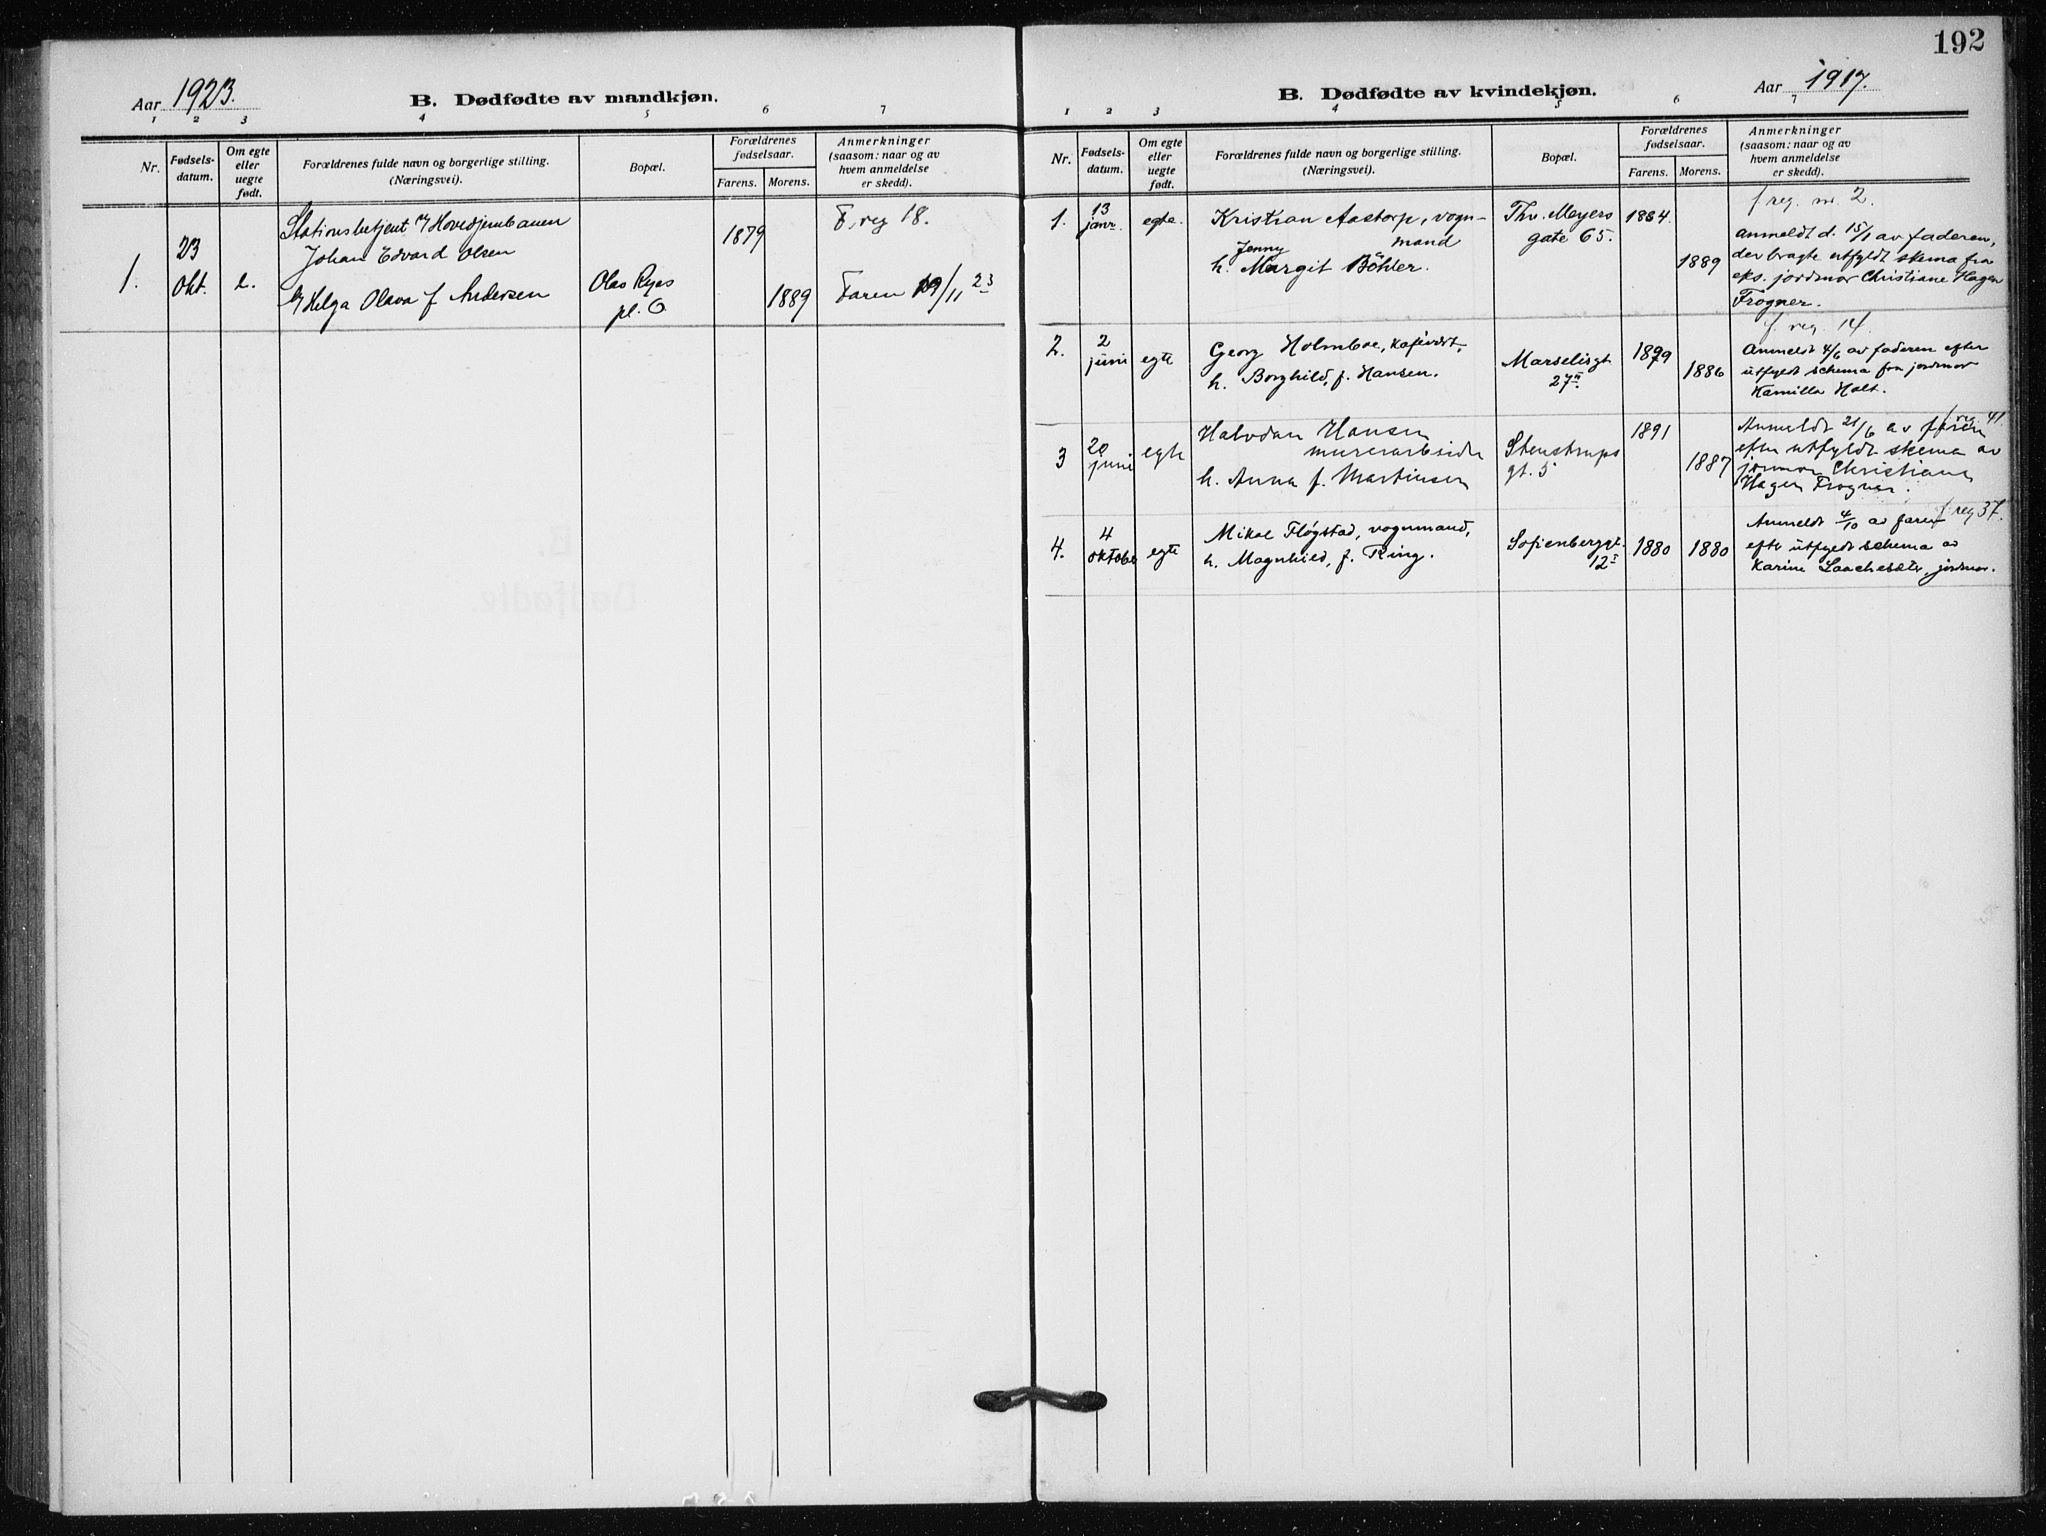 192
Aar 1923.
B. Dødfødte av mandkjøn.
1 2 3 4 5 6 7
Nr.
Fødsels-
datum.
Om egte
eller
uegte
født.
Forældrenes fulde navn og borgerlige stilling.
(Næringsvei).
Bopæl.
Forældrenes
fødselsaar.
Farens. Morens.
Anmerkninger
(saasom: naar og av
hvem anmeldelse
er skedd).
F. reg 18.
Stationsbetjent v/ Hovedjernbanen
Johan Edvard Olsen
1879
1.
23
Okt.
e.
Helga Olava f Andersen
Olav Ryes
pl. 6
1889
Faren 19/11 23
Aar 1917.
B. Dødfødte av kvindekjøn.
1 2 3 4 5 6 7
Nr.
Fødsels-
datum.
Om egte
eller
uegte
født.
Forældrenes fulde navn og borgerlige stilling.
(Næringsvei).
Bopæl.
Forældrenes
fødselsaar.
Farens. Morens.
Anmerkninger
(saasom: naar og av
hvem anmeldelse
er skedd).
f reg. nr. 2.
1.
13
janr.
egte.
Kristian Aastorp, vogn-
mand
Jenny
h. Margit Böhler.
Thv. Meyers
gate 65.
1884.
1889
anmeldt d. 15/1 av faderen,
der bragte utfyldt skema fra
eks. jordmor Christiane Hagen
Frogner.
f. reg. 14.
2.
2
juni
egte
Georg Holmboe, kafévert,
h. Borghild, f. Hansen.
Marselisgt
27 II
1879
1886
Anmeldt 4/6 av faderen efter
utfyldt schema fra jordmor
Kamilla Holt.
f reg. 41
3
20
juni
egte
Halvdan Hansen
murerarbeider
h. Anna f. Martinsen
Stenstrups
gt. 5
1891
1887
Anmeldt 21/6 av faren
efter utfyldt skema av
jormor Christiane
Hagen Frogner.
f reg 37.
4.
4
oktober
egte
Mikal Fløgstad, vognmand,
h. Magnhild, f. Ring.
Sofienberggt.
12 I
1880
1880
Anmeldt 4/10 av faren
efter utfyldt schema av
Karine Laachesæter, jordmor.